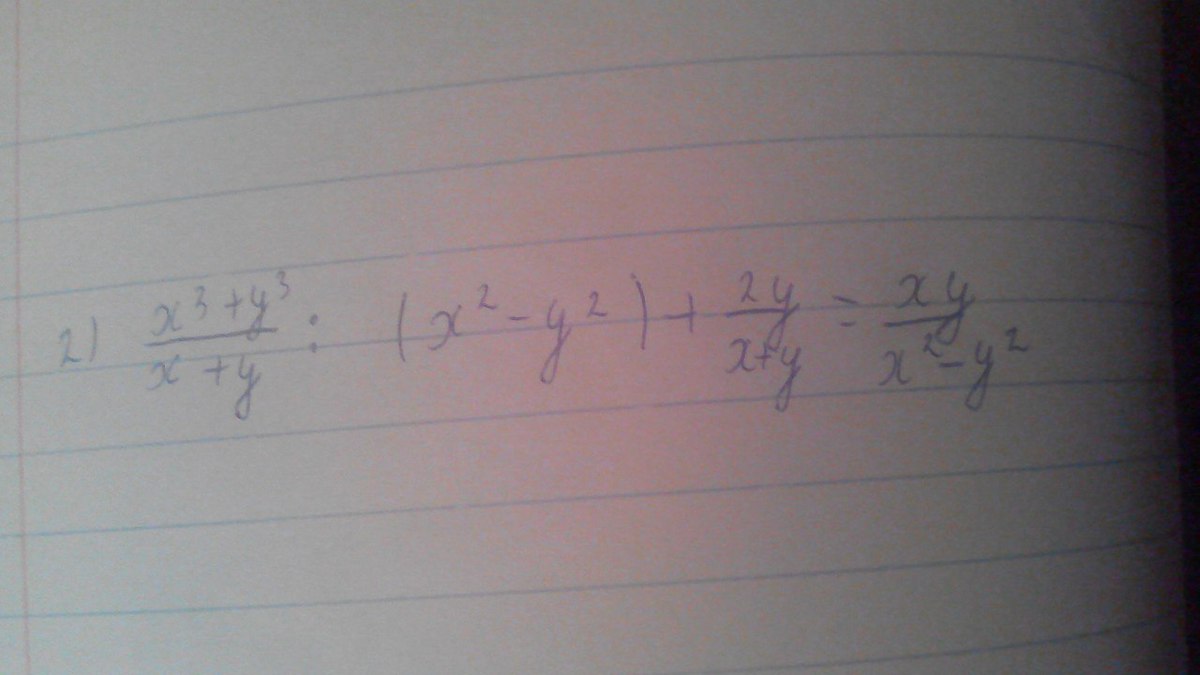 2) \frac{x^3+y^3}{x+y} : (x^2-y^2) + \frac{2y}{x+y} = \frac{xy}{x^2-y^2}